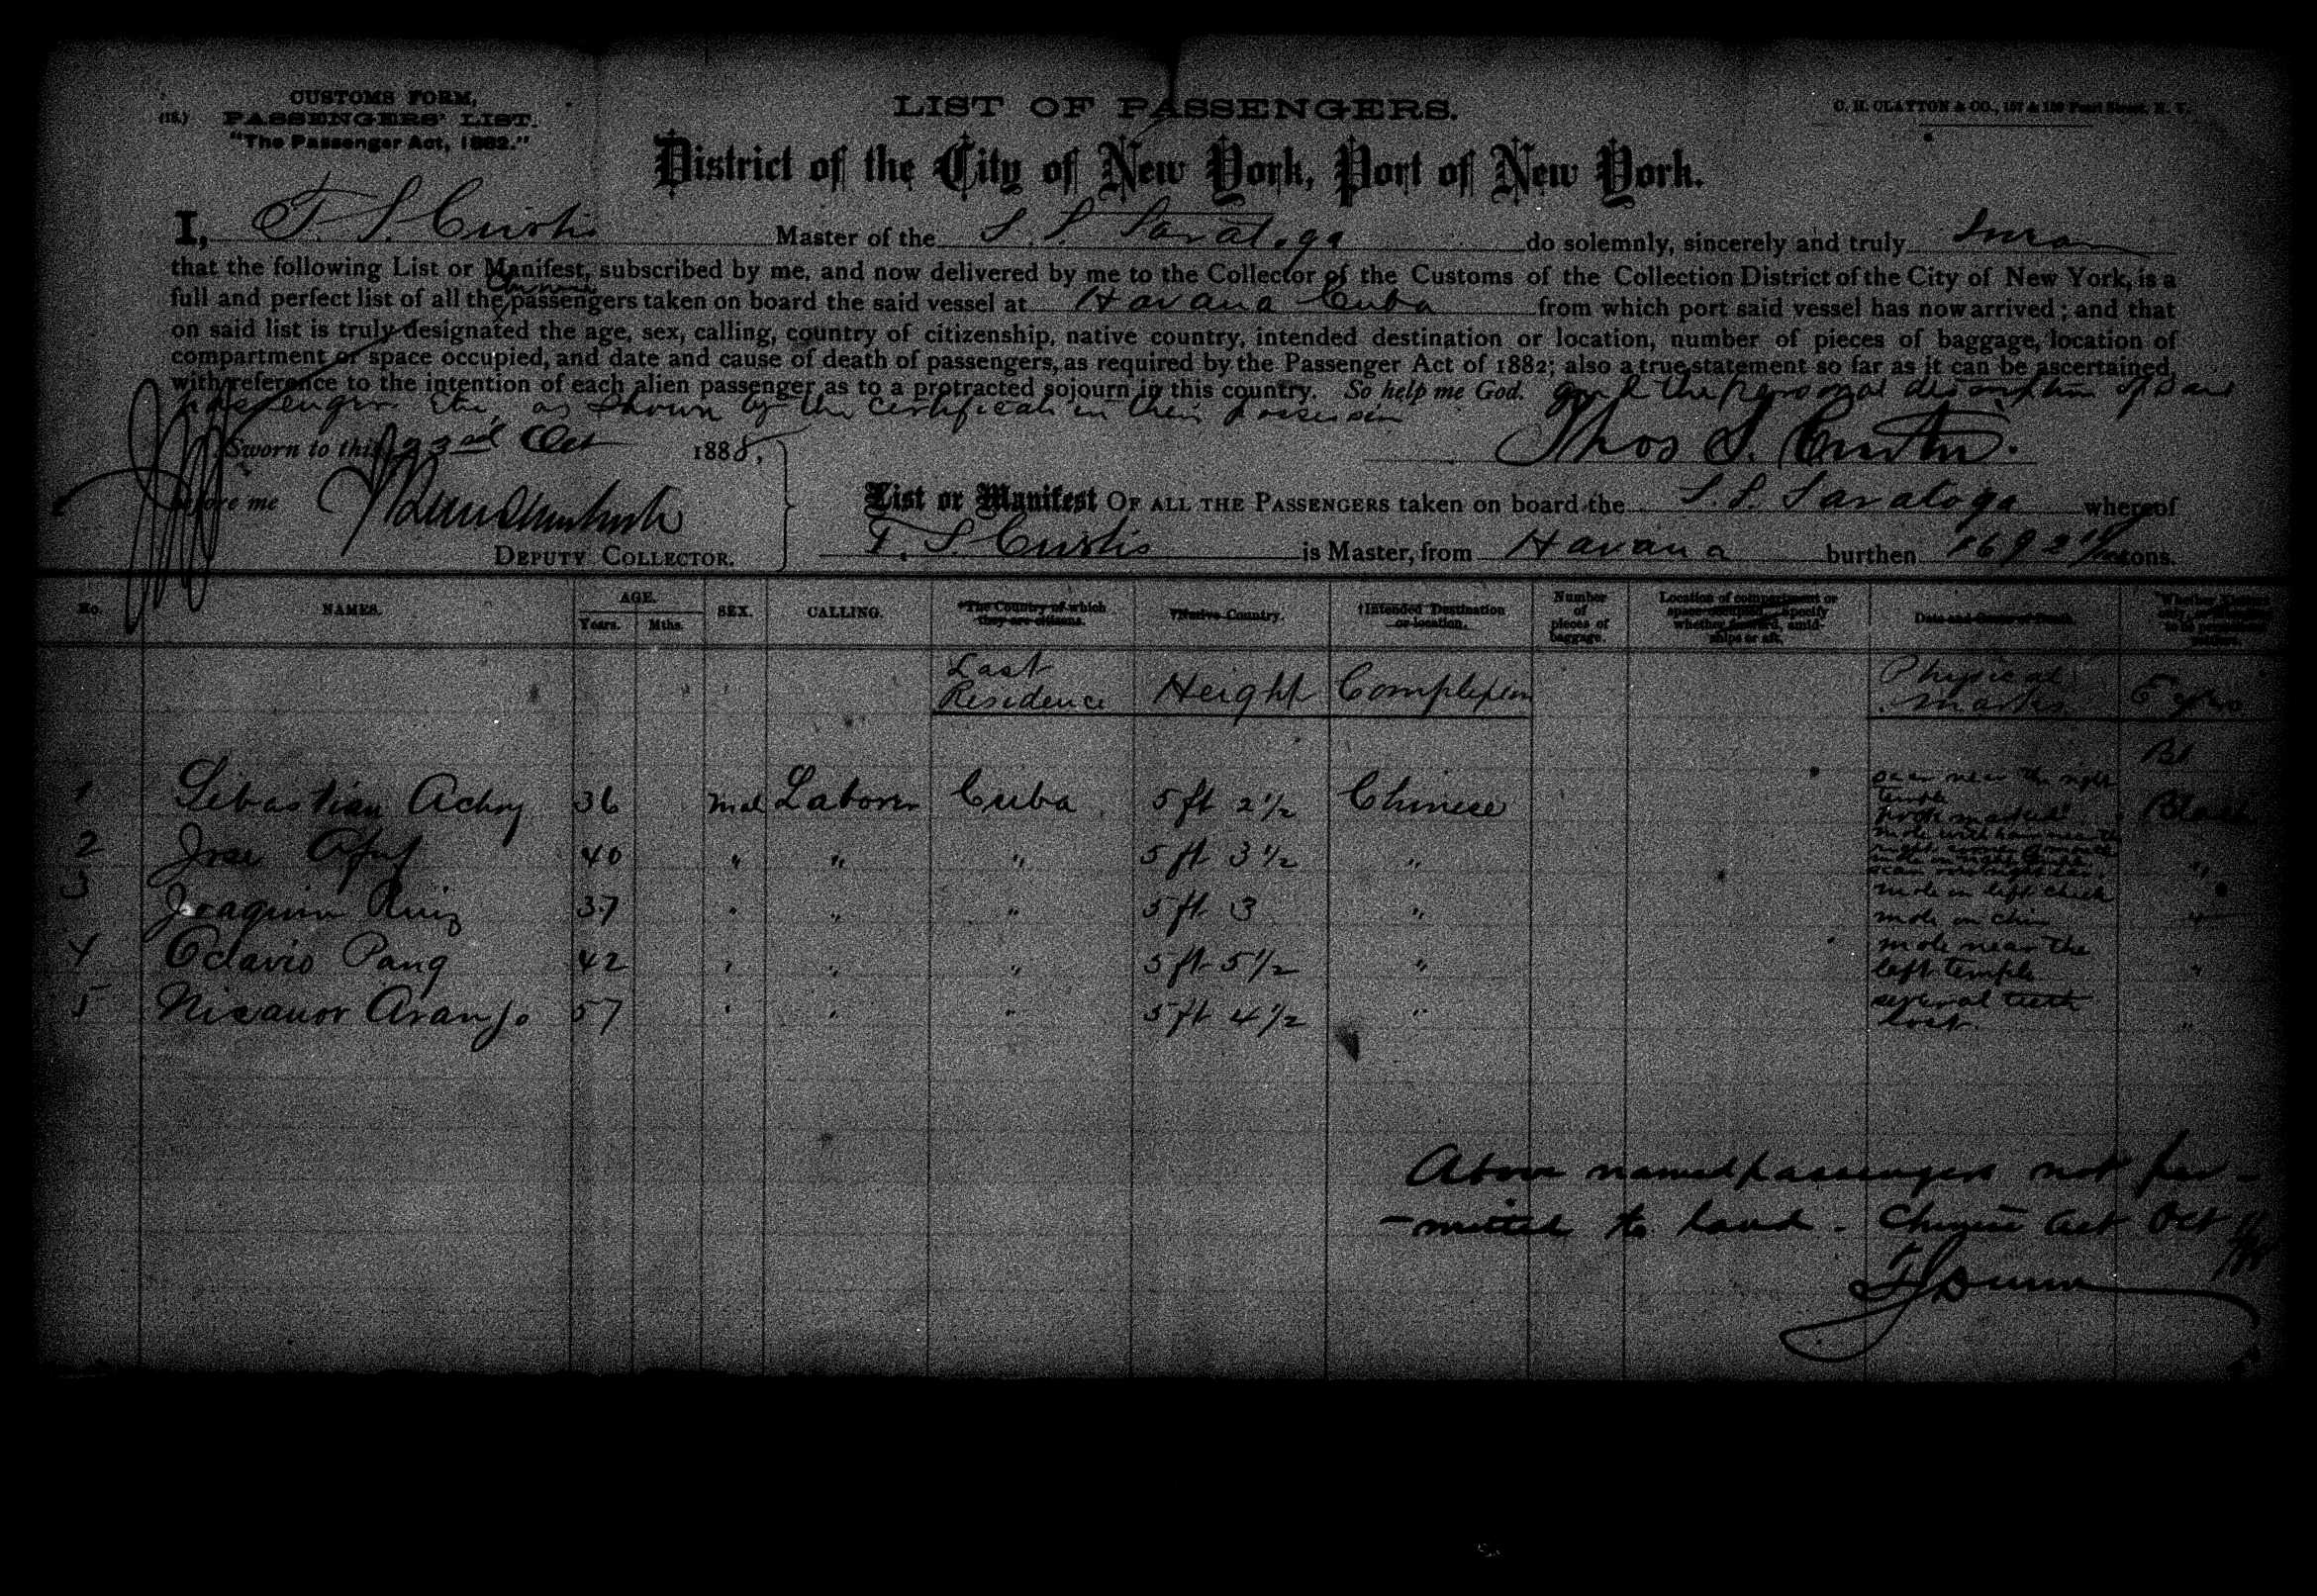 CUSTOMS FORM,
(18.) PASSENGERS' LIST.
"The Passenger Act, 1882."
LIST OF PASSENGERS.
C. H. CLAYTON & CO., 157 & 159 Pearl Street, N. Y.
District of the City of New York, Port of New York.
I, T. S. Curtis Master of the S. S. Saratoga do solemnly, sincerely and truly swear
that the following List or Manifest, subscribed by me, and now delivered by me to the Collector of the Customs of the Collection District of the City of New York, is a
Chinese
full and perfect list of all the passengers taken on board the said vessel at Havana Cuba from which port said vessel has now arrived; and that
on said list is truly designated the age, sex, calling, country of citizenship, native country, intended destination or location, number of pieces of baggage, location of
compartment or space occupied, and date and cause of death of passengers, as required by the Passenger Act of 1882; also a true statement so far as it can be ascertained,
with reference to the intention of each alien passenger as to a protracted sojourn in this country. So help me God. and the personal description of said
passengers etc, as shown by the certificate in their possession
Sworn to this 23rd Oct 1888,
Thos S. Curtis.
before me
List or Manifest OF ALL THE PASSENGERS taken on board the S. S. Saratoga whereof
DEPUTY COLLECTOR.
T. S. Curtis is Master, from Havana burthen 1692 tons.
No. NAMES. AGE. Years. Mths. SEX. CALLING. *The Country of which they are citizens. Native Country. †Intended Destination or location. Number of pieces of baggage. Location of compartment or space occupied. Specify whether forward, amidships or aft. Date and Cause of Death.
Last Residence Height Complexion Physical marks Eyes
Bl
1 Sebastian Achoy 36 Mal Laborer Cuba 5 ft 2 1/2 Chinese scar near the right temple pock marked Black
2 Jose 40 " " " 5 ft 3 1/2 " "
3 Joaquin Ruiz 37 " " " 5 ft 3 " mole on left cheek mole on chin "
4 Octavio Pang 42 " " " 5 ft 5 1/2 " mole near the left temple "
5 Nicanor Aranjo 57 " " " 5 ft 4 1/2 " several teeth lost. "
Above named passengers not per-
-mitted to land. Chinese Act Oct